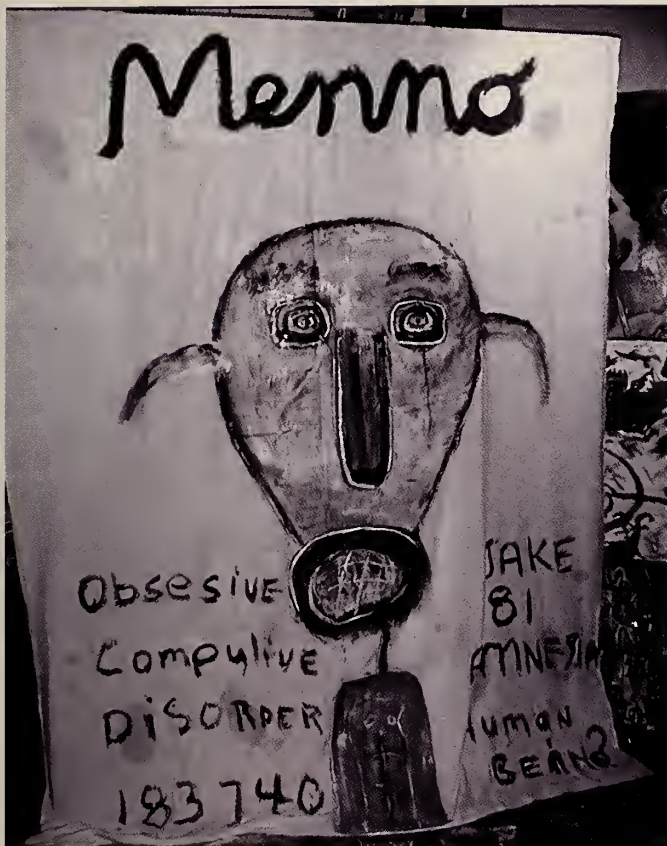 Menno
Obsesive
Compulive
DiSORDER
183740
JAKE
81
AMNESIA
HUMAN
BEANG